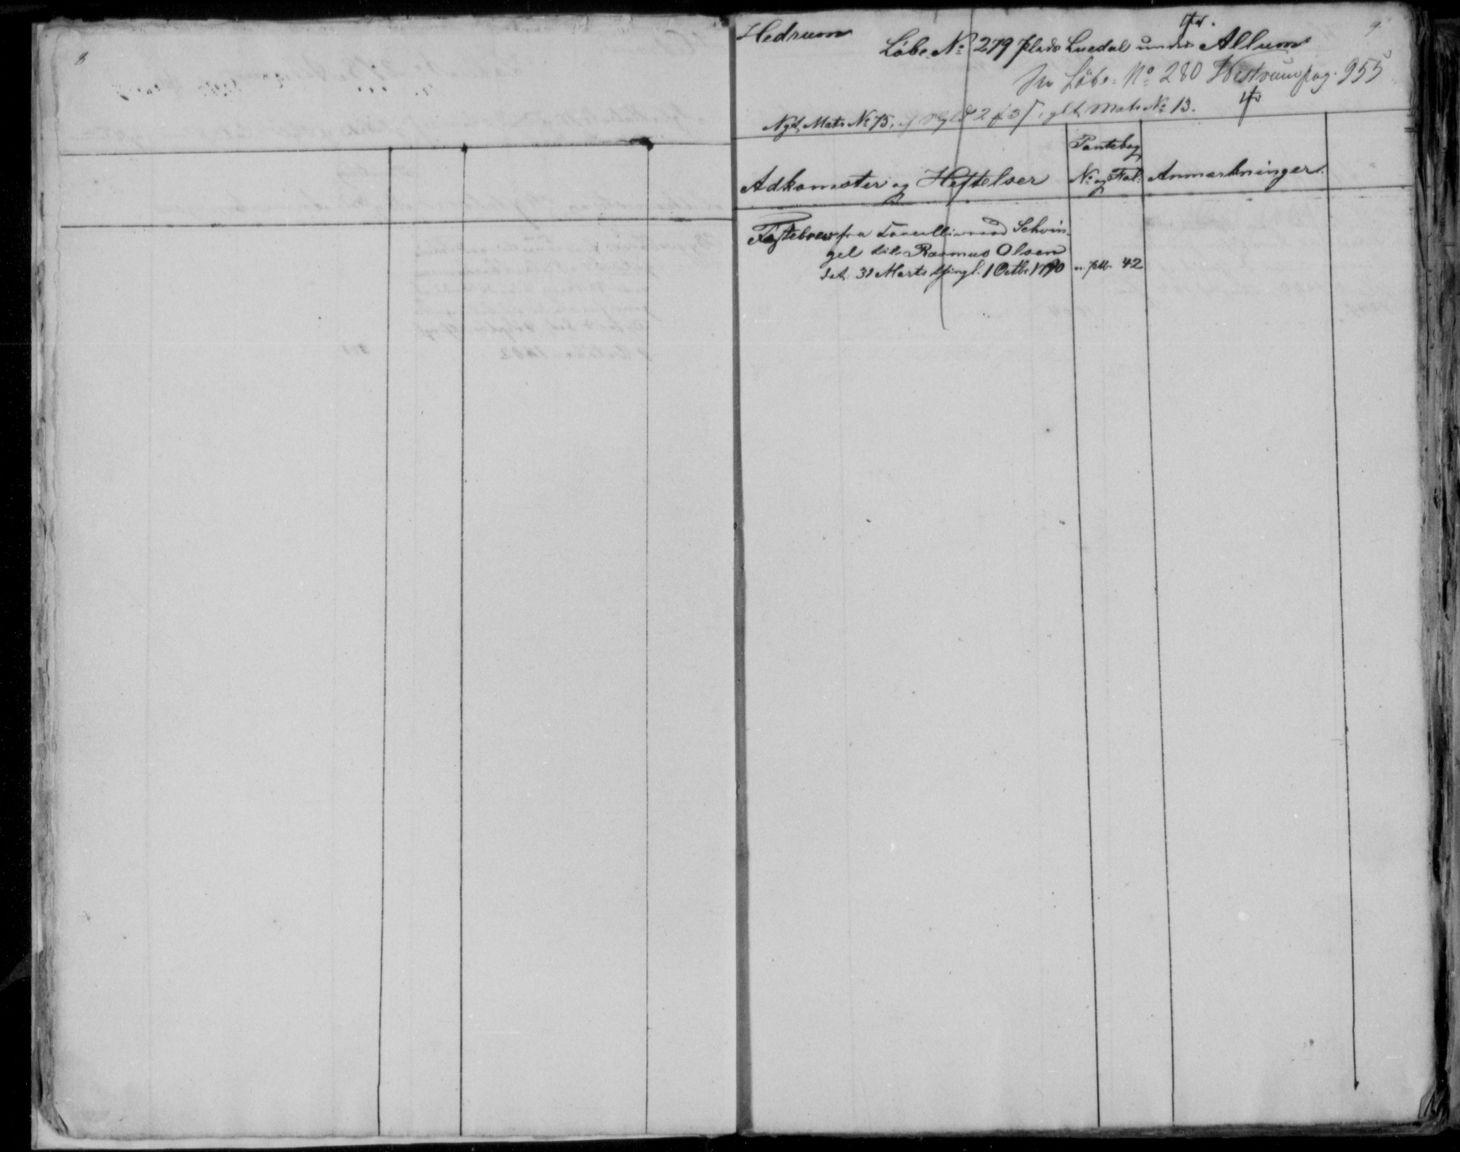 8
9
Hedrum
Løbe No 279 plads Luedal under Allum
Løbe No 280 Hestrum pag. 955
Nyt Mats No 75. glt. Mats No 13.
Adkomster og Heftelser
Pantebog
No og Fol.
Anmærkninger.
Fæstebrev fra Schwin
gel til Rasmus Olsen
dat. 31 Marts thingl. 1 Octbr 1790
42